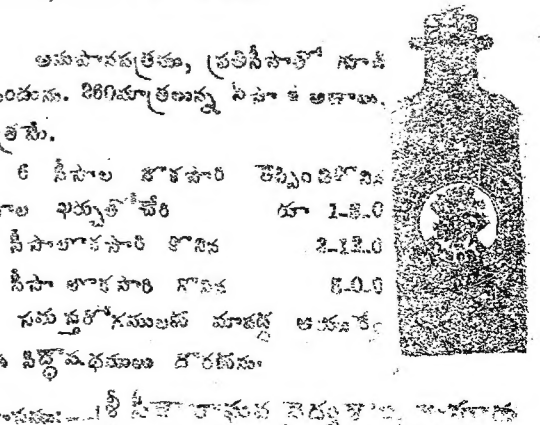 అనుపానపత్రము, ప్రతిసీసాతో గూడ
యుండును. 260మాత్రలున్న సీసా కి అణాలు.
త్రమే.
6 సీసాల నొకసారి తెప్పించుకొనిన
ఖర్చుతో చేరి రూ 1-8-0
సీసాలొకసారి కొనిన 2-12-0
సీసా లొకసారి గొనిన 5-0-0
సమస్తరోగములకు మావద్ద ఆయుర్వే
సిద్ధౌషధములు దొరకును.
శ్రీ సీతారాఘవ వైద్యశాల,